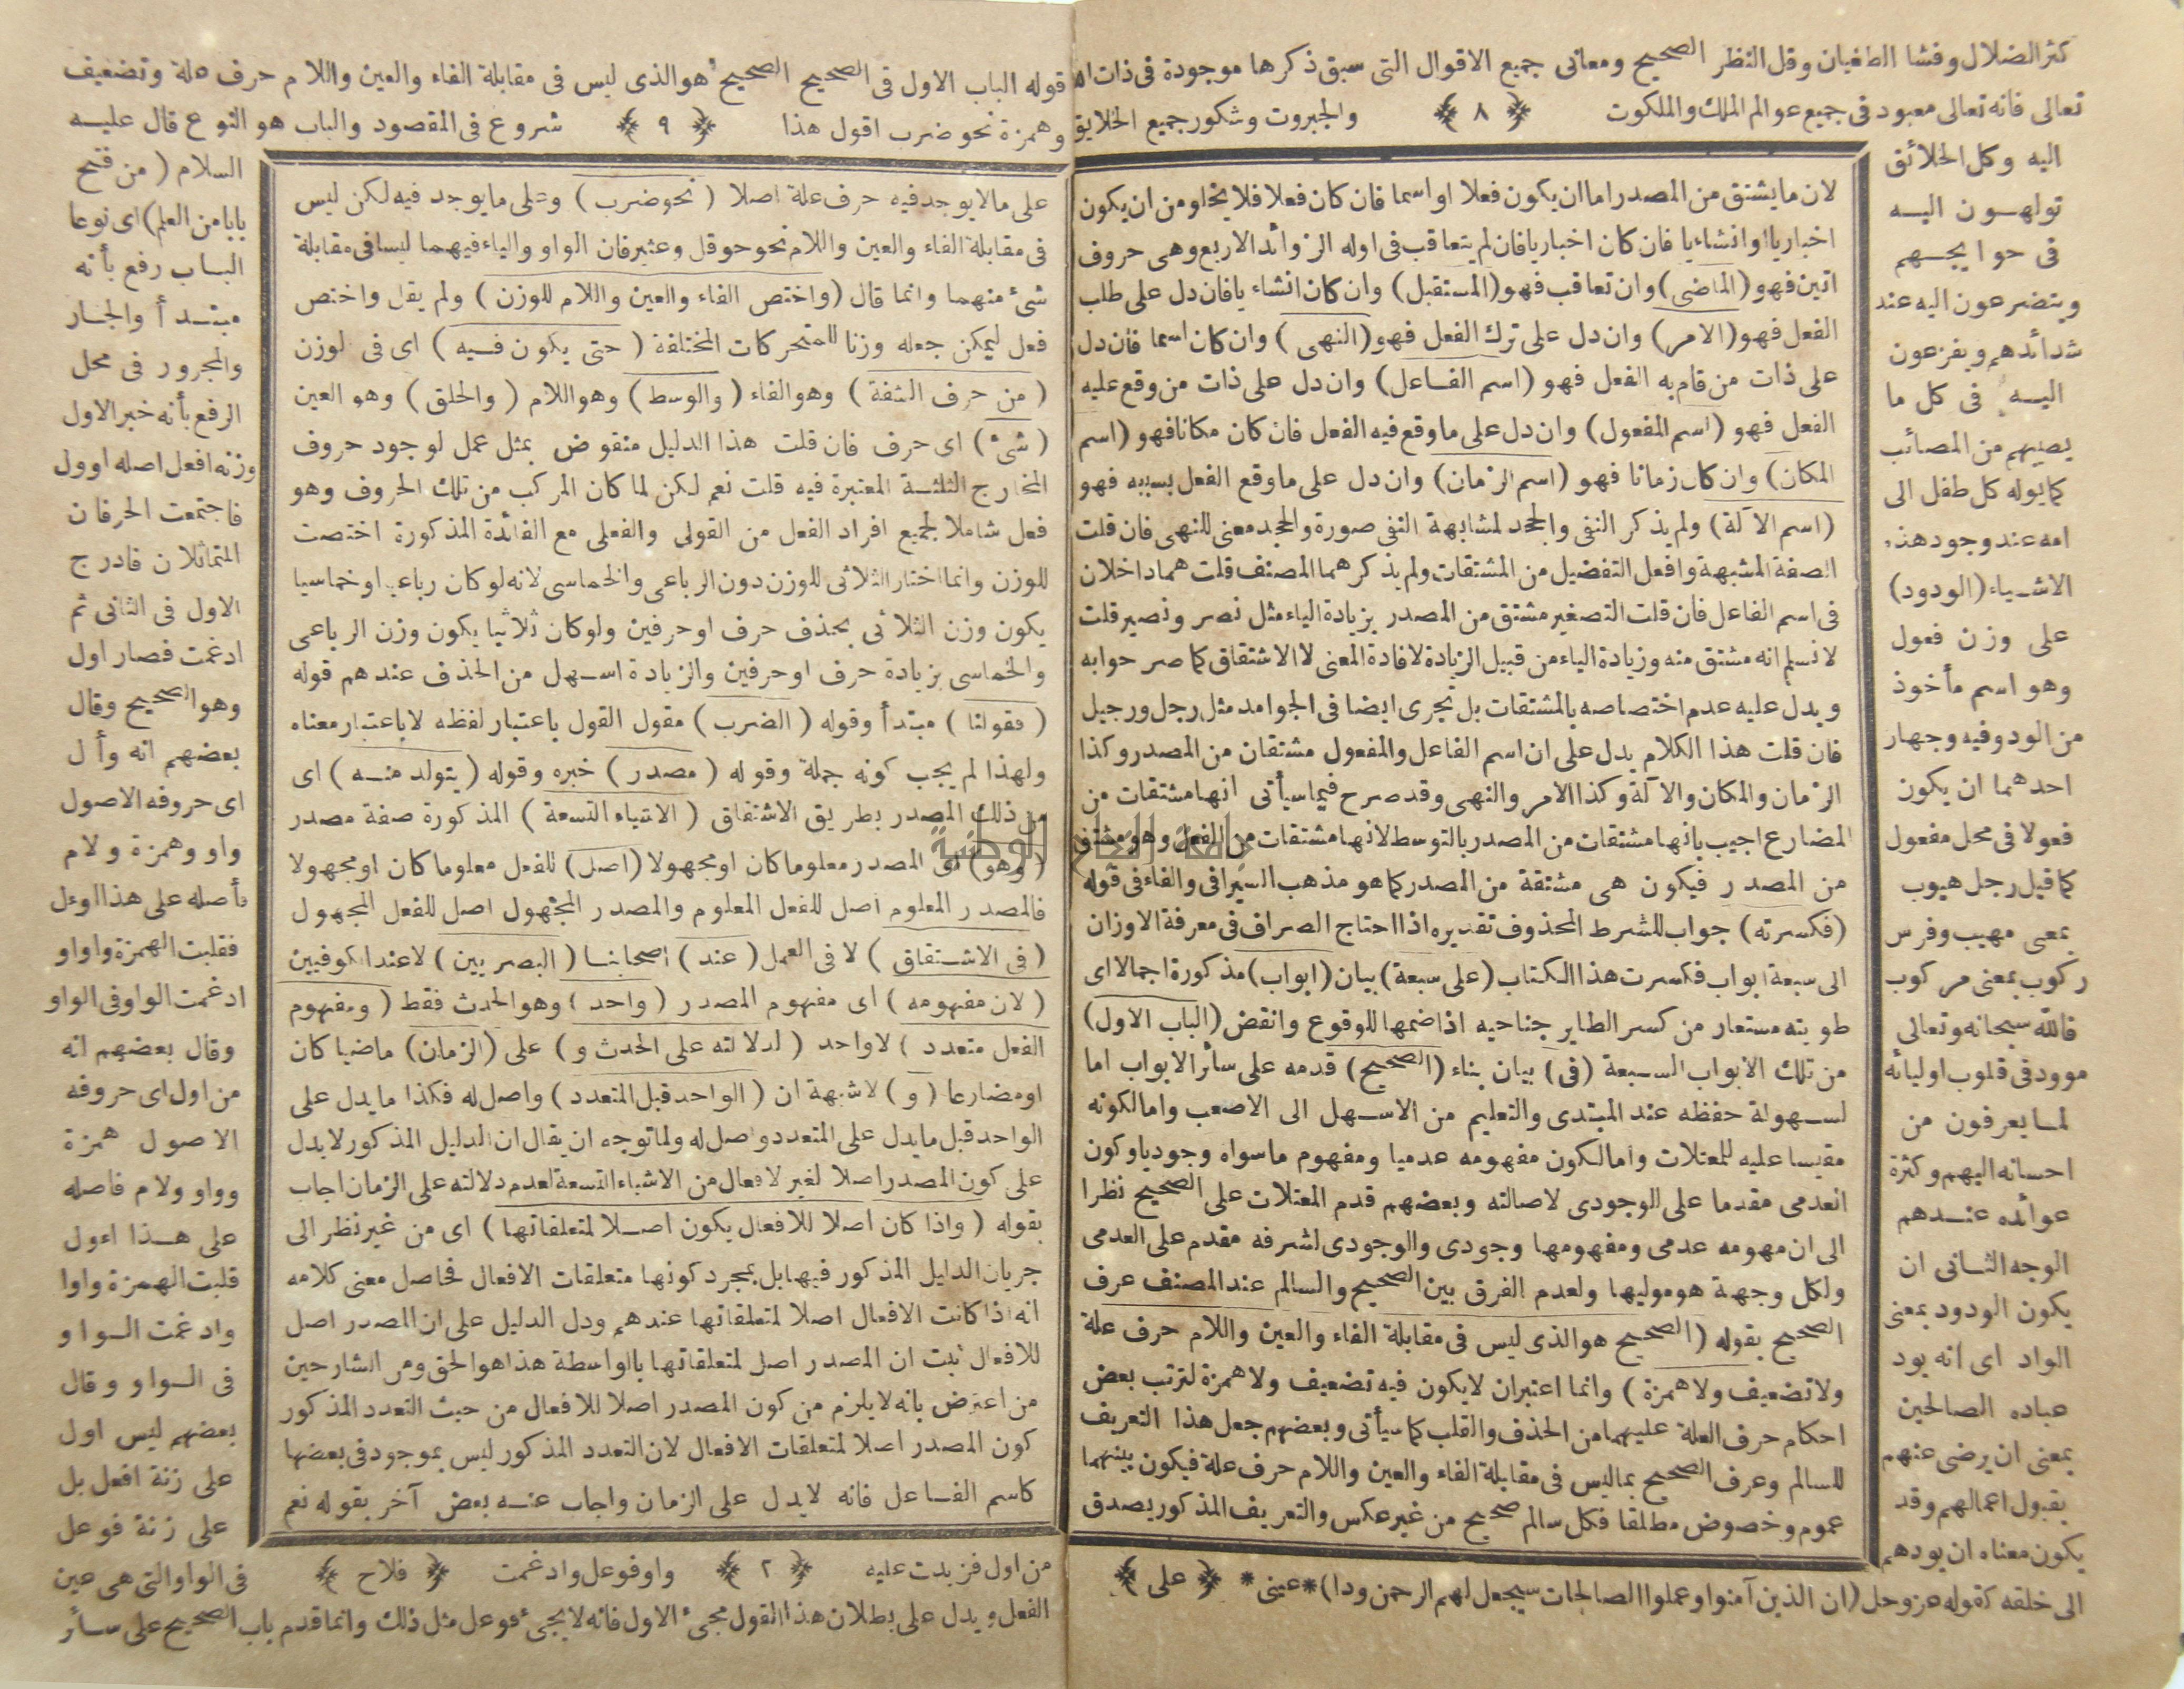 كثر الضلال وفشا الطغيان وقل النظر الصحيح ومعانى جميع الاقوال التى سبق ذكرها موجودة فى ذات الله
تعالى فانه تعالى معبود فى جميع عوالم الملك والملكوت ﴿ ٨ ﴾ والجبروت وشكور جميع الخلايق
اليه وكل الخلائق
تولهون اليه
فى حوايجهم
ويتضرعون اليه عند
شدائدهم ويفزعون
اليه فى كل ما
يصيبهم من المصائب
كما يوله كل طفل الى
امه عند وجود هذه
الاشياء (الودود)
على وزن فعول
وهو اسم مأخوذ
من الود وفيه وجهان
احدهما ان يكون
فعولا فى محل مفعول
كما قيل رجل هيوب
بمعنى مهيب وفرس
ركوب بمعنى مركوب
فالله سبحانه وتعالى
مودود فى قلوب اوليائه
لما يعرفون من
احسانه اليهم وكثرة
عوائده عندهم
الوجه الثانى ان
يكون الودود بمعنى
الواد اى انه يود
عباده الصالحين
بمعنى ان يرضى عنهم
بقبول اعمالهم وقد
يكون معناه ان يودهم
لان ما يشتق من المصدر اما ان يكون فعلا او اسما فان كان فعلا فلا يخلو من ان يكون
اخباريا او انشائيا فان كان اخباريا فان لم يتعاقب فى اوله الزوائد الاربع وهى حروف
اتين فهو (الماضى) وان تعاقب فهو (المستقبل) وان كان انشائيا فان دل على طلب
الفعل فهو (الامر) وان دل على ترك الفعل فهو (النهى) وان كان اسما فان دل
على ذات من قام به الفعل فهو (اسم الفاعل) وان دل على ذات من وقع عليه
الفعل فهو (اسم المفعول) وان دل على ما وقع فيه الفعل فان كان مكانا فهو (اسم
المكان) وان كان زمانا فهو (اسم الزمان) وان دل على ما وقع الفعل بسببه فهو
(اسم الآلة) ولم يذكر النفى والجحد لمشابهة النفى صورة والجحد معنى للنهى فان قلت
الصفة المشبهة وافعل التفضيل من المشتقات ولم يذكرهما المصنف قلت هما داخلان
فى اسم الفاعل فان قلت التصغير مشتق من المصدر بزيادة الياء مثل نصر ونصير قلت
لا نسلم انه مشتق منه وزيادة الياء من قبيل الزيادة لافادة المعنى لا الاشتقاق كما صر حوابه
ويدل عليه عدم اختصاصه بالمشتقات بل تجرى ايضا فى الجوامد مثل رجل ورجيل
فان قلت هذا الكلام يدل على ان اسم الفاعل والمفعول مشتقان من المصدر وكذا
الزمان والمكان والآلة وكذا الامر والنهى وقد صرح فيما سيأتى انها مشتقات من
المضارع اجيب بانها مشتقات من المصدر بالتوسط لانها مشتقات من الفعل وهو مشتق
من المصدر فيكون هى مشتقة من المصدر كما هو مذهب السيرافى والفاء فى قوله
(فكسرته) جواب للشرط المحذوف تقديره اذا احتاج الصراف فى معرفة الاوزان
الى سبعة ابواب فكسرت هذا الكتاب (على سبعة) بيان (ابواب) مذكورة اجمالا اى
طويته مستعار من كسر الطاير جناحيه اذا ضمها للوقوع وانقض (الباب الاول)
من تلك الابواب السبعة (فى) بيان بناء (الصحيح) قدمه على سائر الابواب اما
لسهولة حفظه عند المبتدى والتعليم من الاسهل الى الاصعب واما لكونه
مقيسا عليه للمعتلات واما لكون مفهومه عدميا ومفهوم ما سواه وجوديا وكون
العدمى مقدما على الوجودى لاصالته وبعضهم قدم المعتلات على الصحيح نظرا
الى ان مهومه عدمى ومفهومها وجودى والوجودى لشرفه مقدم على العدمى
ولكل وجهة هو موليها ولعدم الفرق بين الصحيح والسالم عند المصنف عرف
الصحيح بقوله (الصحيح هو الذى ليس فى مقابلة الفاء والعين واللام حرف علة
ولا تضعيف ولا همزة) وانما اعتبر ان لا يكون فيه تضعيف ولا همزة لترتب بعض
احكام حرف العلة عليهما من الحذف والقلب كما سيأتى وبعضهم جعل هذا التعريف
للسالم وعرف الصحيح بما ليس فى مقابلة الفاء والعين واللام حرف علة فيكون بينهما
عموم وخصوص مطلقا فكل سالم صحيح من غير عكس والتعريف المذكور يصدق
الى خلقه كقوله عز وجل (ان الذين آمنوا وعملوا الصالحات سيجعل لهم الرحمن ودا) * عينى * ﴿ على ﴾
قوله الباب الاول فى الصحيح الصحيح هو الذى ليس فى مقابلة الفاء والعين واللام حرف علة وتضعيف
وهمزة نحو ضرب اقول هذا ﴿ ٩ ﴾ شروع فى المقصود والباب هو النوع قال عليه
على ما لا يوجد فيه حرف علة اصلا (نحو ضرب) وعلى ما يوجد فيه لكن ليس
فى مقابلة الفاء والعين واللام نحو حوقل وعثير فان الواو والياء فيهما ليسا فى مقابلة
شئ منهما وانما قال (واختص الفاء والعين واللام للوزن) ولم يقل واختص
فعل ليمكن جعله وزنا للمتحركات المختلفة (حتى يكون فيه) اى فى لوزن
(من حرف الشفة) وهو الفاء (والوسط) وهو اللام (والحلق) وهو العين
(شئ) اى حرف فان قلت هذا الدليل منقوض بمثل عمل لوجود حروف
المخارج الثلثة المعتبرة فيه قلت نعم لكن لما كان المركب من تلك الحروف وهو
فعل شاملا لجميع افراد الفعل من القولى والفعلى مع الفائدة المذكورة اختصت
للوزن وانما اختار الثلاثى للوزن دون الرباعى والخماسى لانه لو كان رباعيا او خماسيا
يكون وزن الثلاثى بحذف حرف او حرفين ولو كان ثلاثيا يكون وزن الرباعى
والخماسى بزيادة حرف او حرفين والزيادة اسهل من الحذف عندهم قوله
(فقولنا) مبتدأ وقوله (الضرب) مقول القول باعتبار لفظه لا باعتبار معناه
ولهذا لم يجب كونه جملة وقوله (مصدر) خبره وقوله (يتولد منه) اى
من ذلك المصدر بطريق الاشتقاق (الاشياء التسعة) المذكورة صفة مصدر
(وهو) اى المصدر معلوما كان او مجهولا (اصل) للفعل معلوما كان او مجهولا
فالمصدر المعلوم اصل للفعل المعلوم والمصدر المجهول اصل للفعل المجهول
(فى الاشتقاق) لا فى العمل (عند) اصحابنا (البصريين) لا عند الكوفيين
(لان مفهومه) اى مفهوم المصدر (واحد) وهو الحدث فقط (ومفهوم
الفعل متعدد) لا واحد (لدلالته على الحدث و) على (الزمان) ماضيا كان
او مضارعا (و) لا شبهة ان (الواحد قبل المتعدد) واصل له فكذا ما يدل على
الواحد قبل ما يدل على المتعدد واصل له ولما توجه ان يقال ان الدليل المذكور لا يدل
على كون المصدر اصلا لغير لافعال من الاشياء التسعة لعدم دلالته على الزمان اجاب
بقوله (واذا كان اصلا للافعال يكون اصلا لمتعلقاتها) اى من غير نظر الى
جريان الدليل المذكور فيها بل بمجرد كونها متعلقات الافعال فحاصل معنى كلامه
انه اذا كانت الافعال اصلا لمتعلقاتها عندهم ودل الدليل على ان المصدر اصل
للافعال ثبت ان المصدر اصل لمتعلقاتها بالواسطة هذا هو الحق ومن الشارحين
من اعترض بانه لا يلزم من كون المصدر اصلا للافعال من حيث التعدد المذكور
كون المصدر اصلا لمتعلقات الافعال لان التعدد المذكور ليس بموجود فى بعضها
كاسم الفاعل فانه لا يدل على الزمان واجاب عنه بعض آخر بقوله نعم
السلام (من فتح
بابا من العلم) اى نوعا
الباب رفع بأنه
مبتدأ والجار
والمجرور فى محل
الرفع بأنه خبر الاول
وزنه افعل اصله اوول
فاجتمعت الحرفان
المتماثلان فادرج
الاول فى الثانى ثم
ادغمت فصار اول
وهو الصحيح وقال
بعضهم انه وأل
اى حروفه الاصول
واو وهمزة ولام
فأصله على هذا اوءل
فقلبت الهمزة واوا و
ادغمت الواو فى الواو
وقال بعضهم انه
من اول اى حروفه
الاصول همزة
وواو ولام فاصله
على هذا اءول
قلبت الهمزة واوا
وادغمت الواو
فى الواو وقال
بعضهم ليس اول
على زنة افعل بل
على زنة فوعل
من اول فزيدت عليه ﴿ ٢ ﴾ واو فوعل وادغمت ﴿ فلاح ﴾ فى الواو التى هى عين
الفعل ويدل على بطلان هذا القول مجئ الاول فانه لا يجئ فوعل مثل ذلك وانما قدم باب الصحيح على سائر
جامعة النجاح الوطنية